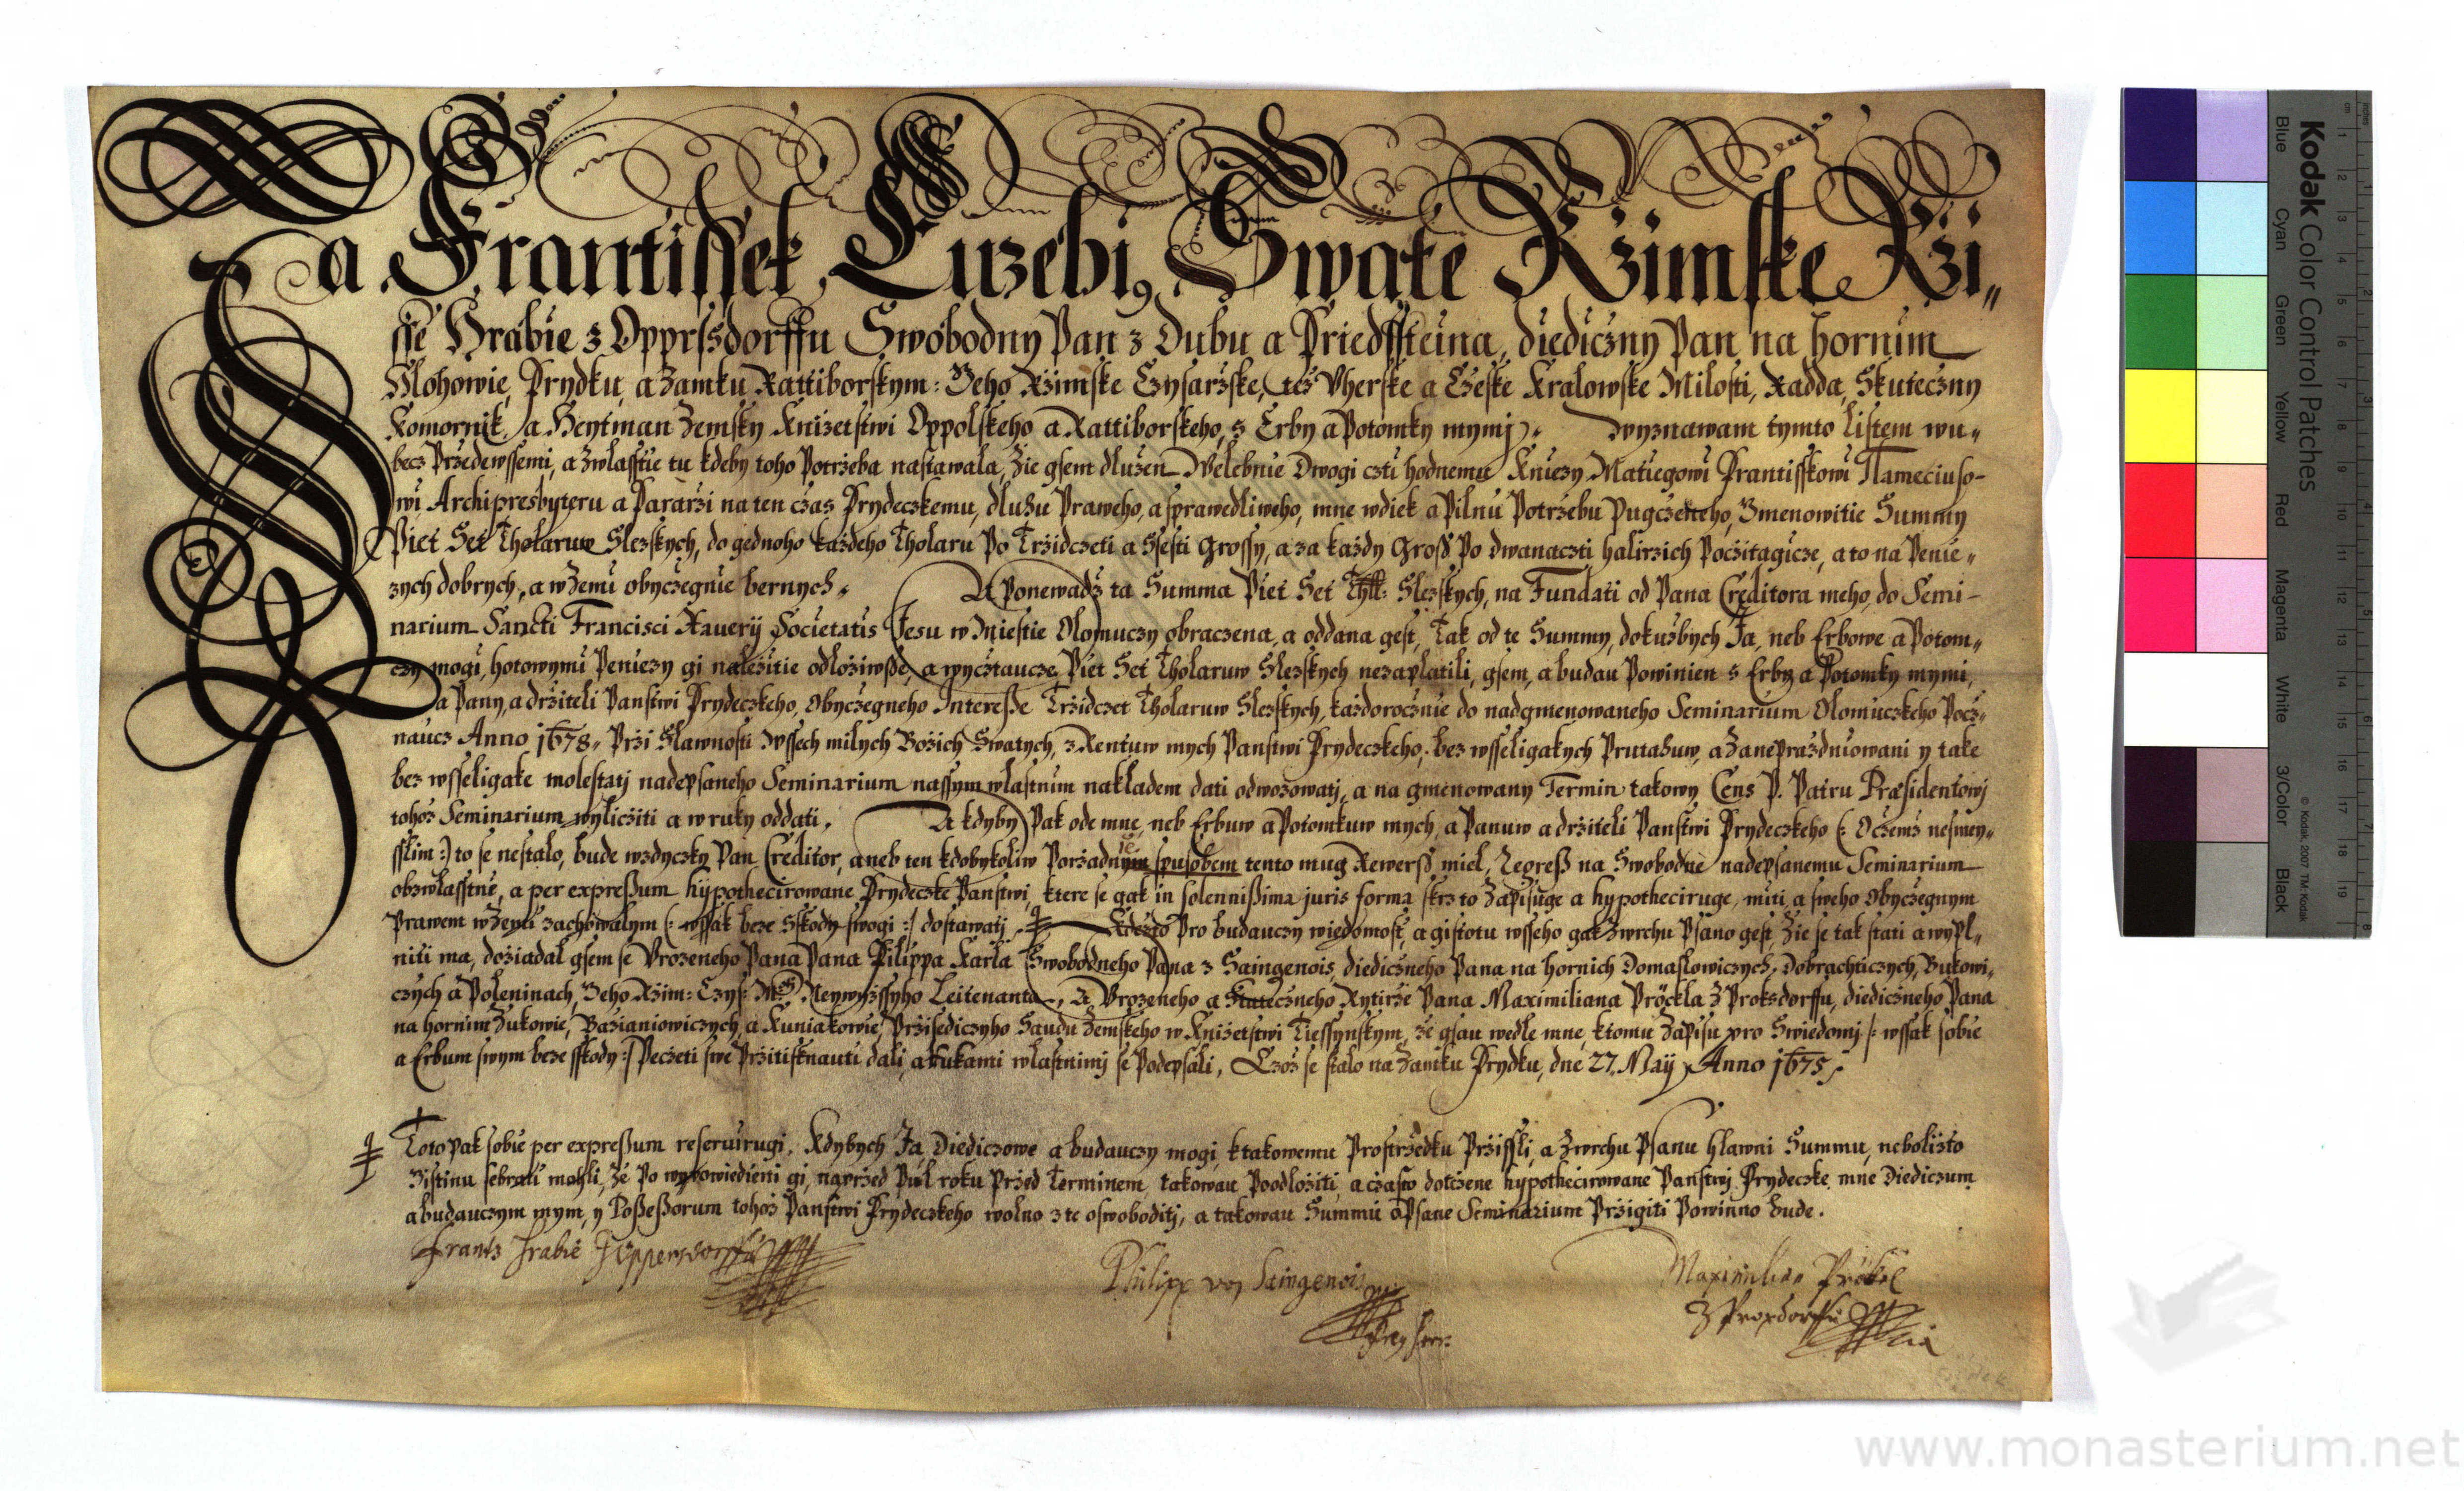 Ja Frantissek Euzebi9 Swate Rzimske Rzi„
sse Hrabie z Opprszdorffu Swobodny Pan z Dubu a Friedssteina, diediczny Pan na hornim
Glohowie, Frydku, a Zamku Rattiborskym: Jeho Rzimske Czysarzske, tez Vherske a Czeske Kralowske Milosti, Radda, Skuteczny
Komornik, a Heytman Zemsky Knizetstwi Oppolskeho a Rattiborskeho, s Erby a Potomky mymj). wyznawam tymto listem wu„
becz Przedewssemi, a zwlasstie tu kdeby toho Potrzeba nastawala, Zie gsem dluzen Welebnie Dwogi czti hodnemu Kniezy Matiegowi Frantisskowi Nameciuso-
wi Archipresbyteru a Fararzi na ten czas Frydeczkemu, dluhu Praweho, a sprawedliweho, mne wdiek a Pilnu Potrzebu Pugczeneho, Zmenowitie Summy
Piet Set Tholaruw Slezskych, do gednoho kazdeho Tholaru Po Trzidczeti a Ssesti Grossy, a za kazdy Groß Po dwanaczti halirzich Poczitagicze, a to na Penie„
zych dobrych, a w Zemi obyczegnie bernych. A Ponewadz ta Summa Piet Set Thll: Slezskych, na Fundati od Pana Creditora meho, do Semi-
narium Sancti Francisci Xauerij Societatis Jesu w Miestie Olomuczy obraczena, a oddana gest, Tak od te Summy, dokuzbych Ja, neb Erbowe a Potom„
czy mogi, hotowymi Peniezy gi nalezitie odloziwße, a wycztaucze Piet Set Tholaruw Slezskych nezaplatili, gsem, a budau Powinien s Erby a Potomky mymi,
a Pany, a drziteli Panstwi Frydeczkeho, Obyczegneho Intereße Trzidczet Tholaruw Slezskych, kazdorocznie do nadgmenowaneho Seminarium Olomuczkeho Pocz„
naucz Anno 1678„ Przi Slawnosti Wssech milych Bozich Swatych, z Rentuw mych Panstwi Frydeczkeho, bez wsseligakych Prutahuw, a Zaneprazdniowani y take
bez wsseligake molestatj nadepsaneho Seminarium nassym wlastnim nakladem dati odwozowatj, a na gmenowany Termin takowy Cens P. Patru Præsidentowj
tohoz Seminarium wylicziti a w ruky oddati. A kdyby Pak ode mne, neb Erbuw a Potomkuw mych, a Panuw a drziteli Panstwi Frydeczkeho (: Oczemz nesmey„
sslim :) to se nestalo, bude wzdyczky Pan Creditor, aneb ten kdobykoliw Porzadnym spusobem tento mug Rewerß miel, Regreß na Swobodne nadepsanemu Seminarium
obzwlasstne, a per expreßum hÿpothecirowane Frydeczke Panstwi, ktere se gak in solennißima juris forma skrz to Zapisuge a hypotheciruge, miti, a sweho Obyczegnym
Prawem w Zemi zachowalym (: wssak beze Sskody swogi :) dostawatj. Kdezto Pro budauczy wiedomost, a gistotu wsseho gak Zwrchu Psano gest, Zie se tak stati a wypl„
niti ma, doziadal gsem se Vrozeneho Pana Pana Filippa Karla Swobodneho Pana z Saingenois, diediczneho Pana na hornich Domaslowiczych, Dobrachticzych, Bukowi„
czych a Poleninach, Jeho Rzim: Czys: Mti Neywyssyho Leitenanta, A Vrozeneho a Stateczneho Rytirze Pana Maximiliana Pröckla Z Proksdorffu, diediczneho Pana
na hornim Zukowie, Bazianiowiczych, a Kuniakowie, Przisediczyho Saudu Zemskeho w Knizetstwi Tiessynskym, ze gsau wedle mne, ktomu Zapisu pro Swiedomj (: wssak sobie
a Erbum swym beze sskody :) Peczeti swe Przitisknauti dali, a Rukami wlastnimj se Podepsali, Czoz se stalo na Zamku Frydku, dne 27. Maij Anno 1675.
Toto Pak sobie per expreßum reseruirugi, Kdybych Ja, Diediczowe a budauczy mogi, ktakowemu Prostrzedku Przissli, a Zwrchu Psanu hlawni Summu, nebolizto
Zistinu sebrati mohli, Ze Po wypowiedieni gi, naprzed Pul roku Przed Terminem, takowau Poodloziti, a czasto dotczene hypothecirowane Panstwj Frydeczke, mne Diediczum
a budauczym mym, y Poßeßorum tohoz Panstwi Frydeczkeho wolno z te oswoboditj, a takowau Summu a Psane Seminarium Przigiti Powinno bude.
Frantz Hrabie z Oppersdorffu
Philipp von Saingenois
Freyherr
Maximilian Prökel
Z Proxdorffu
Kodak Color Control Patches
Blue Cyan Green Yellow Red Magenta White 3/Color Black
© Kodak, 2007 TM: Kodak
inches 1 2 3 4 5 6 7 8
cm 1 2 3 4 5 6 7 8 9 10 11 12 13 14 15 16 17 18 19
www.monasterium.net